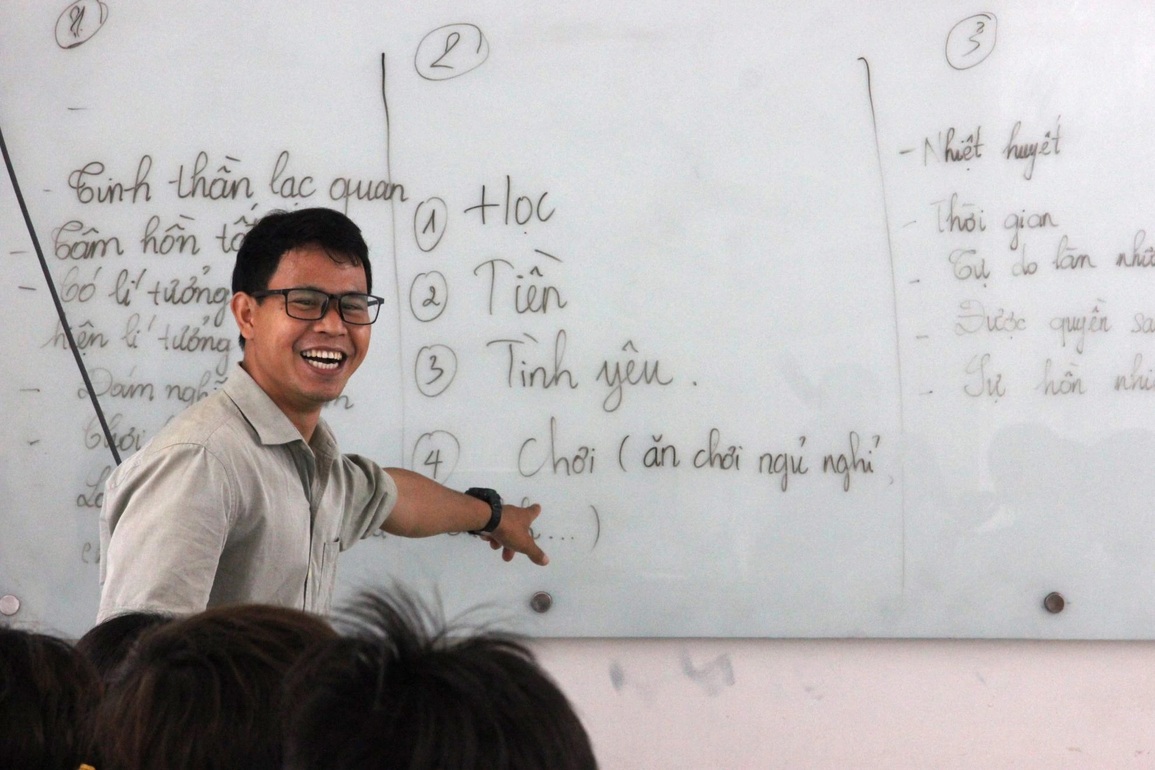 1
- Tinh thần lạc quan
- Tâm hồn
- Có lí tưởng
hiện lí tưởng
- Dám
-
2
① Học
② Tiền
③ Tình yêu.
④ Chơi (ăn chơi ngủ nghỉ,
...)
3
- Nhiệt huyết
- Thời gian
- Tự do làm
- Được quyền
- Sự hồn